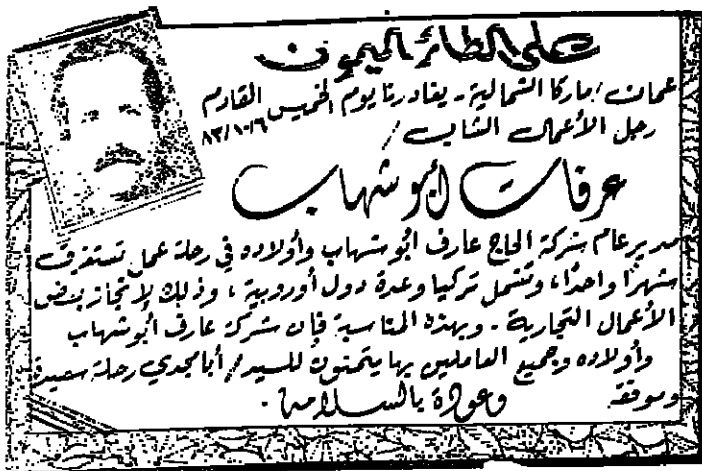 على الطائر الميمون
عمان / ماركا الشمالية - يغادرنا يوم الخميس القادم
رجل الأعمال الشاب /
عرفات أبو شهاب
مدير عام شركة الحاج عارف أبو شهاب وأولاده في رحلة عمل تستغرق
شهرًا واحدًا، وتشمل تركيا وعدة دول أوروبية، وذلك لإنجاز بعض
الأعمال التجارية - وبهذه المناسبة فإن شركة عارف أبو شهاب
وأولاده وجميع العاملين بها يتمنون للسيد / أبا مجدي رحلة سعيدة
وموفقة وعودة بالسلامة.